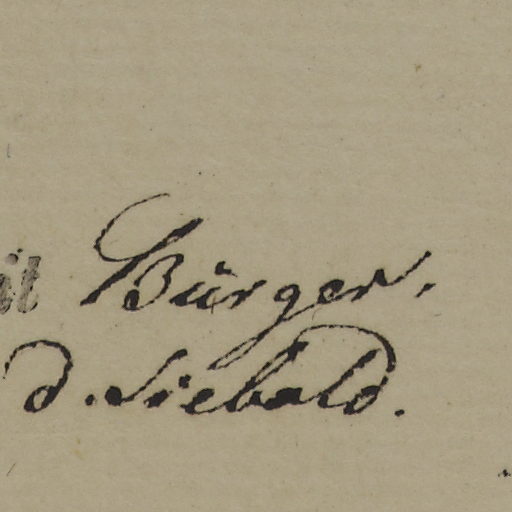 Bürger.
d. Siebold.